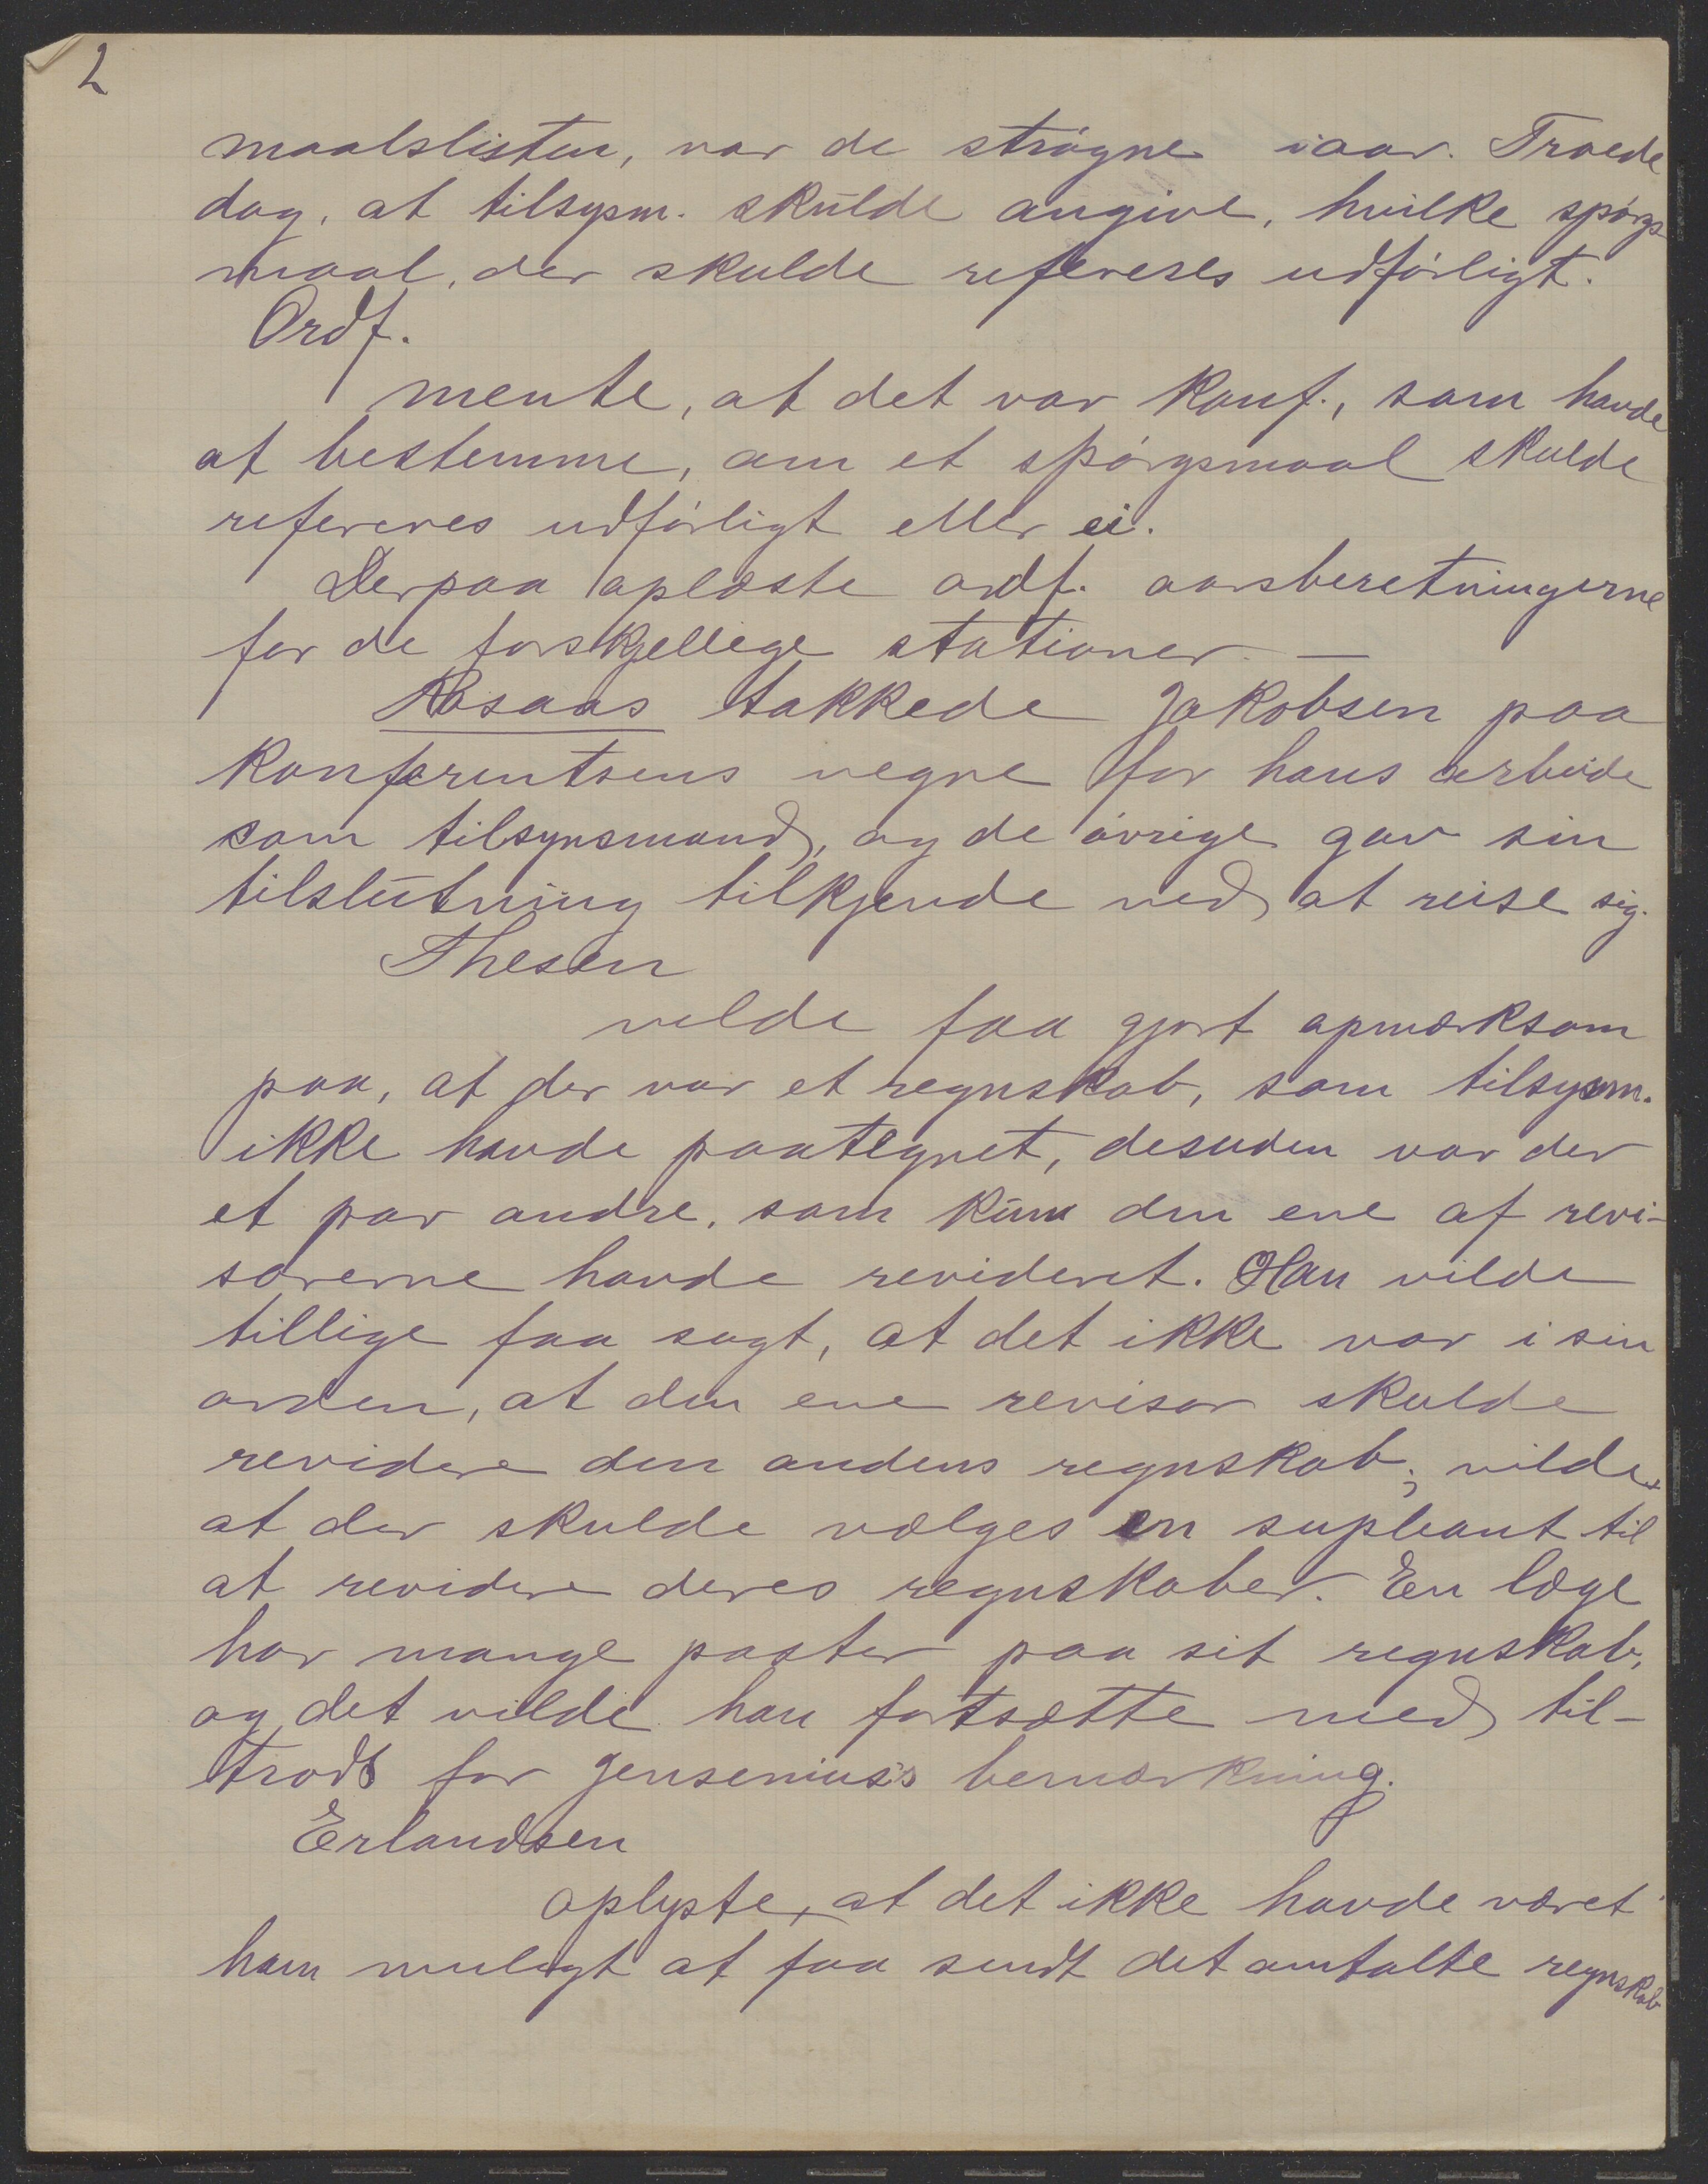 2
maalslisten, var de strøgne iaar. Troede
dog, at tilsysm. skulde angive, hvilke spørgs-
maal, der skulde refereres udførligt.
Ordf.
mente, at det var konf., som havde
at bestemme, om et spørgsmaal skulde
refereres udførligt eller ei.
Derpaa oplæste ordf. aarsberetningerne
for de forskjellige stationer. —
Røsaas takkede Jakobsen paa
konferentsens vegne for hans arbeide
som tilsynsmand, og de øvrige gav sin
tilslutning tilkjende ved at reise sig.
Thesen
vilde faa gjort opmærksom
paa, at der var et regnskab, som tilsysm.
ikke havde paategnet, desuden var der
et par andre, som kun den ene af revi-
sorerne havde revideret. Han vilde
tillige faa sagt, at det ikke var i sin
orden, at den ene revisor skulde
revidere den andens regnskab; vilde,
at der skulde vælges en supleant til
at revidere deres regnskaber. En læge
har mange poster paa sit regnskab,
og det vilde han fortsætte med til-
trods for Jensenius's bemærkning.
Erlandsen
oplyste, at det ikke havde været
ham muligt at faa sendt det omtalte regnskab